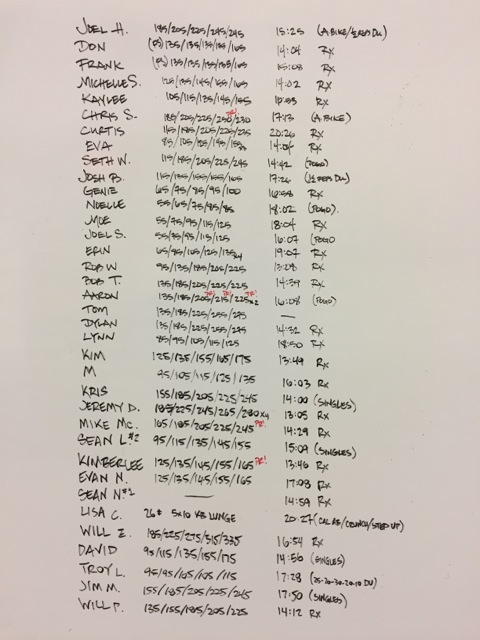 JOEL H. 185/205/225/245/245 15:25 (A.BIKE/½ REPS DU)
DON (95) 135/135/135/155/165 14:04 Rx
FRANK (95) 135/135/155/155/165 15:08 Rx
MICHELLE S. 125/135/145/155/165 14:02 Rx
KAYLEE 105/115/135/145/155 Rx
CHRIS S. 185/205/225/230/230 PR! 17:13 (A BIKE)
CURTIS 165/185/205/225/235 20:26 Rx
EVA 85/105/125/145/155 14:04 Rx
SETH W. 115/185/205/225/245 14:42 (POGO)
JOSH B. 115/135/155/155/165 17:26 (½ REPS DU)
GENIE 65/75/85/95/100 16:58 Rx
NOELLE 55/65/75/85/85 18:02 (POGO).
MOE 55/75/95/115/125 18:04 Rx
JOEL S. 55/75/95/115/125 16:07 (POGO
ERIN 65/95/105/125/135 19:07 Rx
ROB W 95/135/185/205/225 13:08 Rx
BOB T. 135/185/205/225/225 14:39 Rx
AARON 135/185/205/215/225x2 PR! PR! PR! 16:08 (POGO)
TOM 135/185/225/255/275 —
DYLAN 135/185/225/255/275 14:32 Rx
LYNN 85/95/105/115/125 18:50 Rx
KIM 125/135/155/165/175 13:49 Rx
M 95/105/115/125/135 16:03 Rx
KRIS 155/185/205/225/245 14:00 (SINGLES)
JEREMY D. 185/225/245/265/280x4 13:05 Rx
MIKE MC. 165/185/205/225/245 PR! 14:29 Rx
SEAN L.#2 95/115/135/145/155 15:09 (SINGLES)
KIMBERLEE 125/135/145/155/165 PR! 13:46 Rx
EVAN N. 125/135/145/155/165 17:08 Rx
SEAN N#2 — 14:59 Rx
LISA C. 26# 5x10 KB LUNGE 20:27 (CAL AB/CRUNCH/STEP UP)
WILL E. 185/225/275/315/335 16:54 Rx
DAVID 95/115/135/155/175 14:56 (SINGLES)
TROY L. 95/95/105/105/115 17:28 (25-20-30-20-10 DU)
JIM M. 155/185/205/225/245 17:50 (SINGLES)
WILL P. 135/155/185/205/225 14:12 Rx